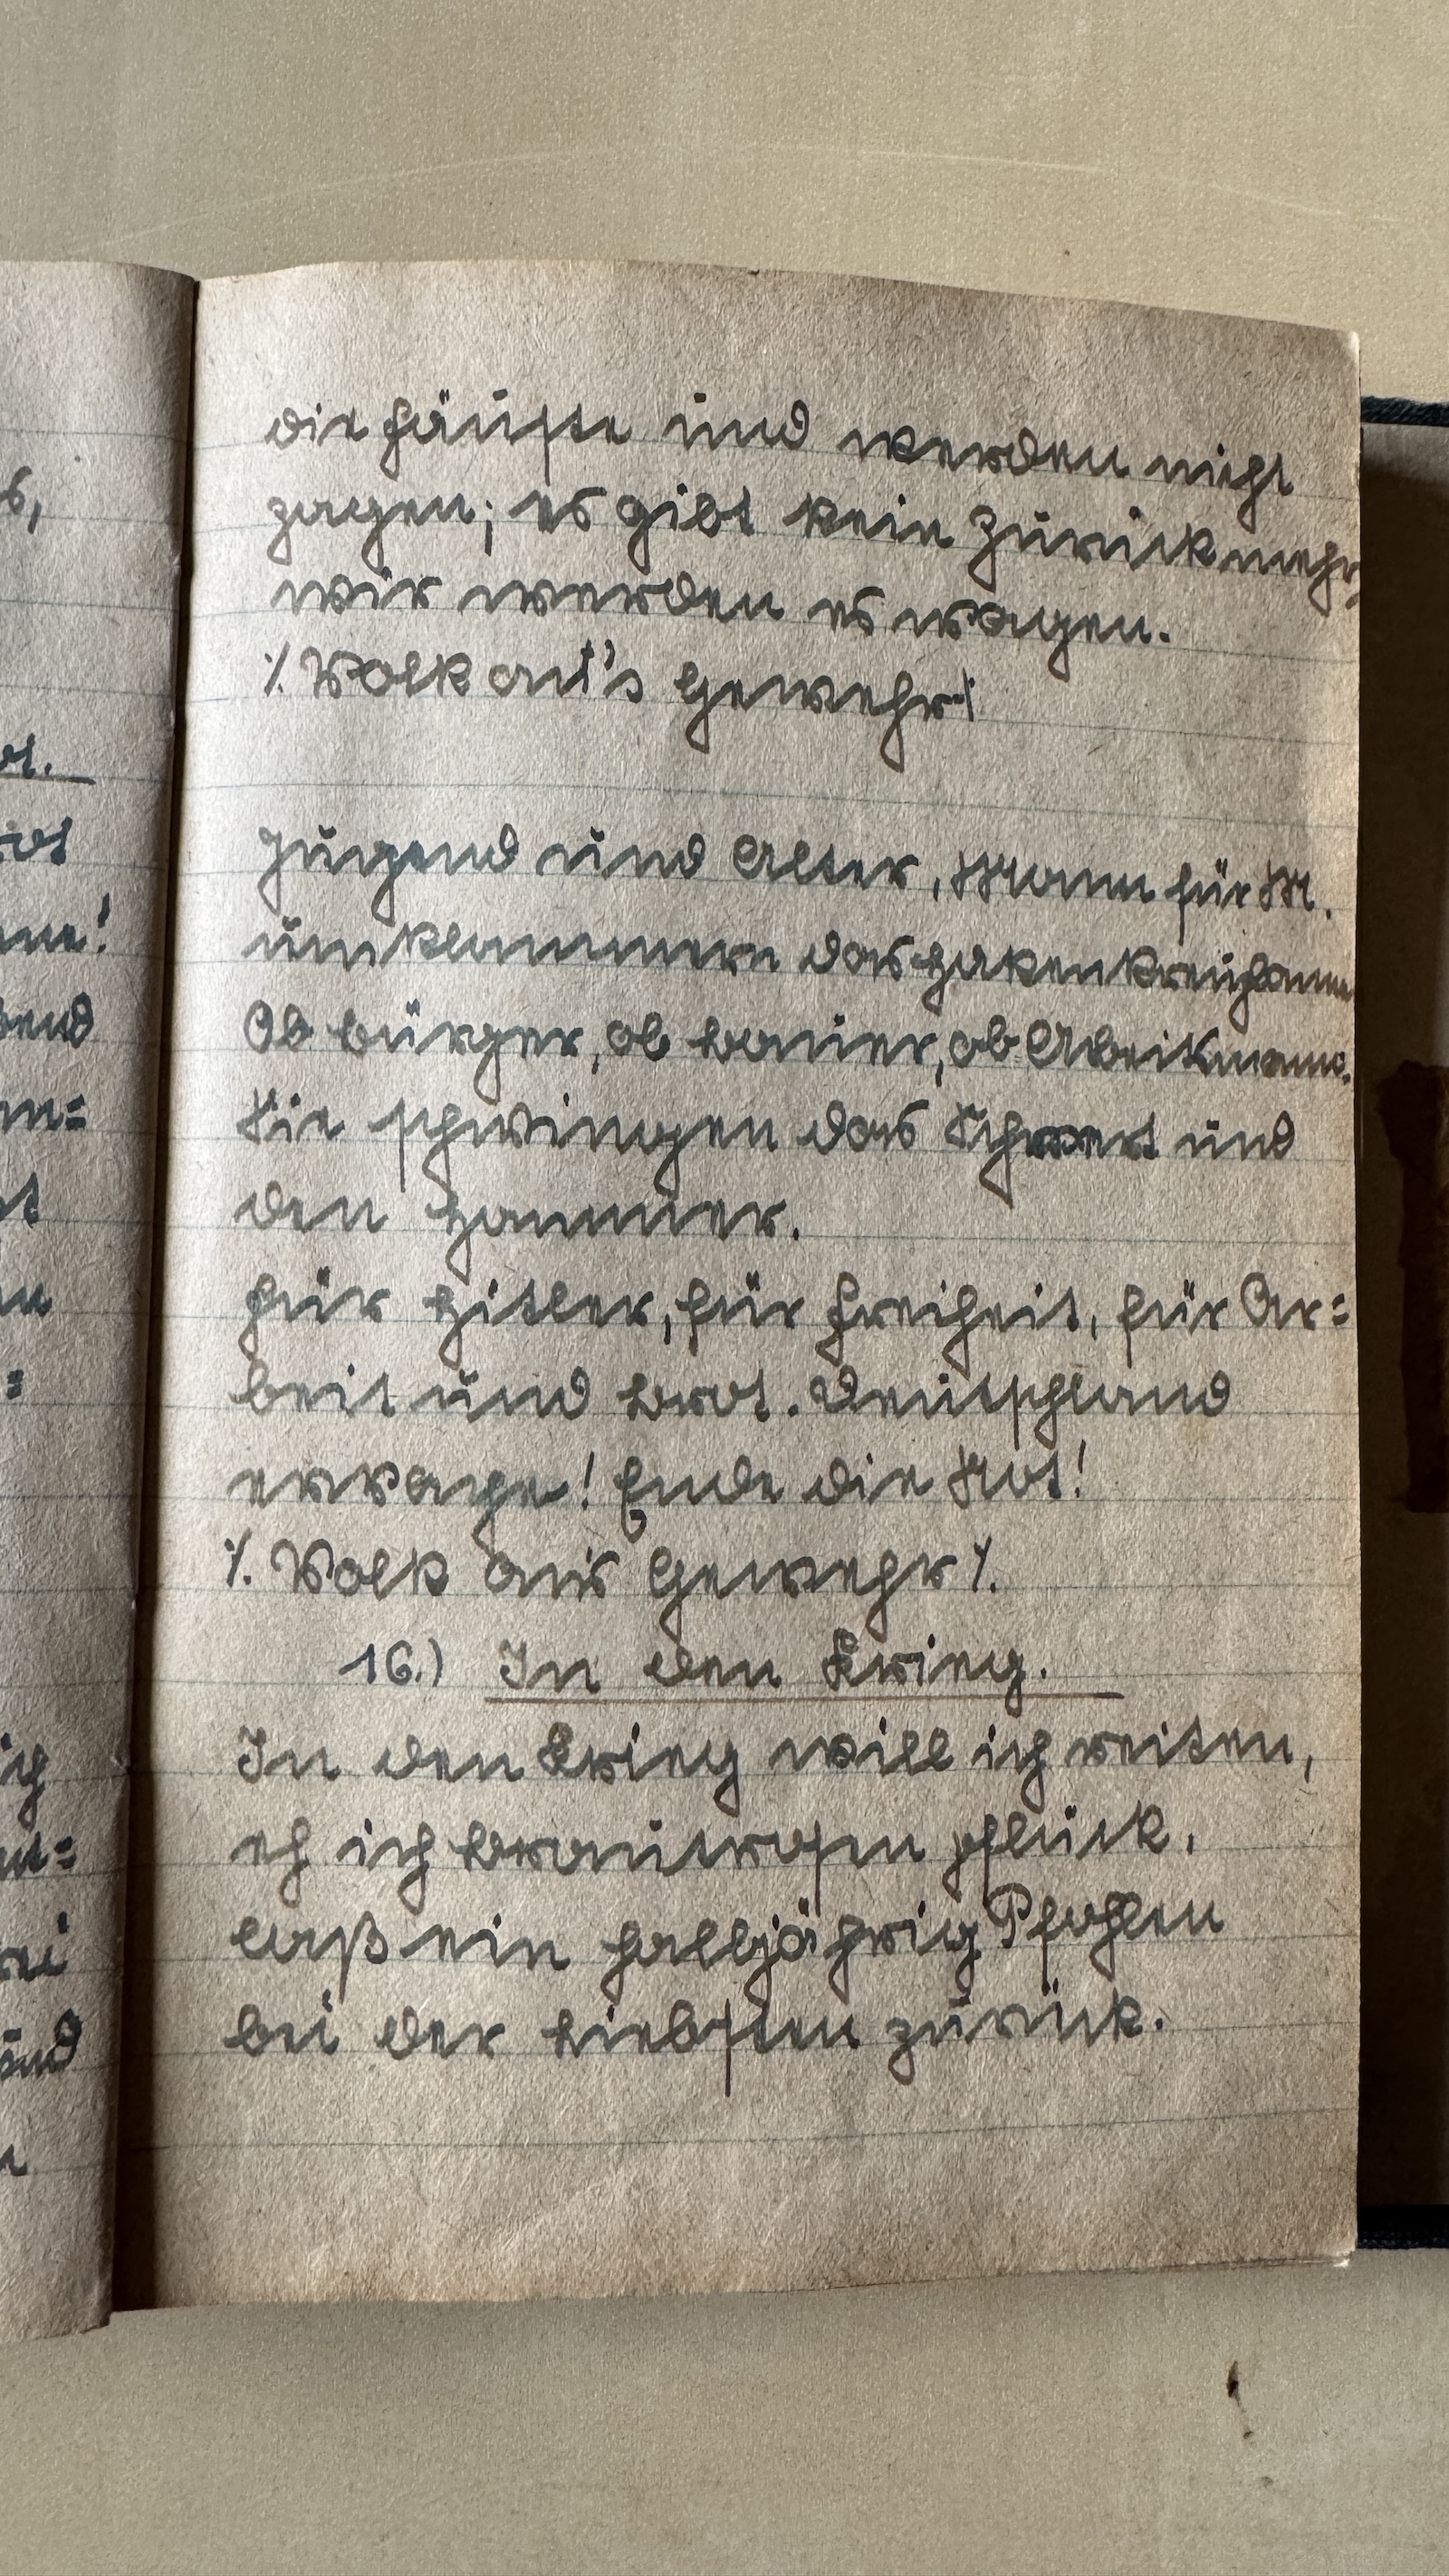 die Fäuste und werden nicht
zagen; es gibt kein Zurück mehr,
wir werden es wagen.
٪. Volk an's Gewehr ٪
Jugend und Alter, Mann für M.
umklammern das Hakenkreuzbanner
Ob Bürger, ob Bauer, ob Arbeitsmann.
Sie schwingen das Schwert und
den Hammer.
Für Hitler, für Freiheit, für Ar=
beit und Brot. Deutschland
erwache! Ende die Not!
٪. Volk ans Gewehr ٪.
16.) In den Krieg.
In den Krieg will ich reiten,
eh ich Brautrosen pflück,
laß ein halbjährig Pfohlen
bei der Liebsten zurück.